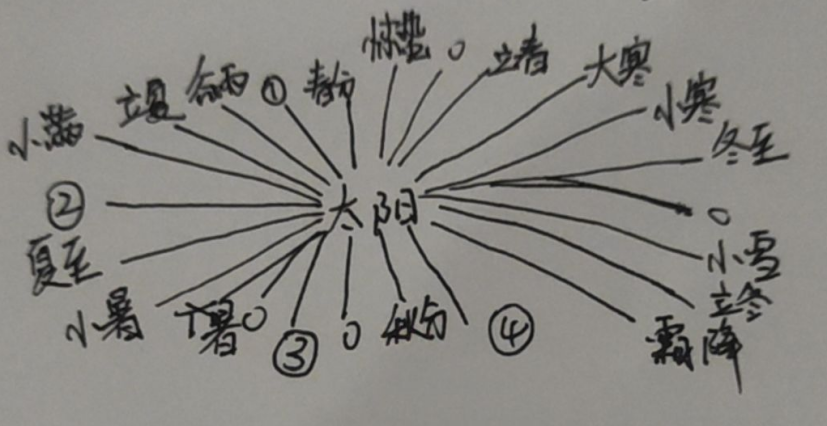 惊蛰
0
立春
大寒
小寒
冬至
春分
①
谷雨
立夏
小满
②
太阳
0
夏至
小雪
小暑
大暑
0
③
0
秋分
④
立冬
霜降